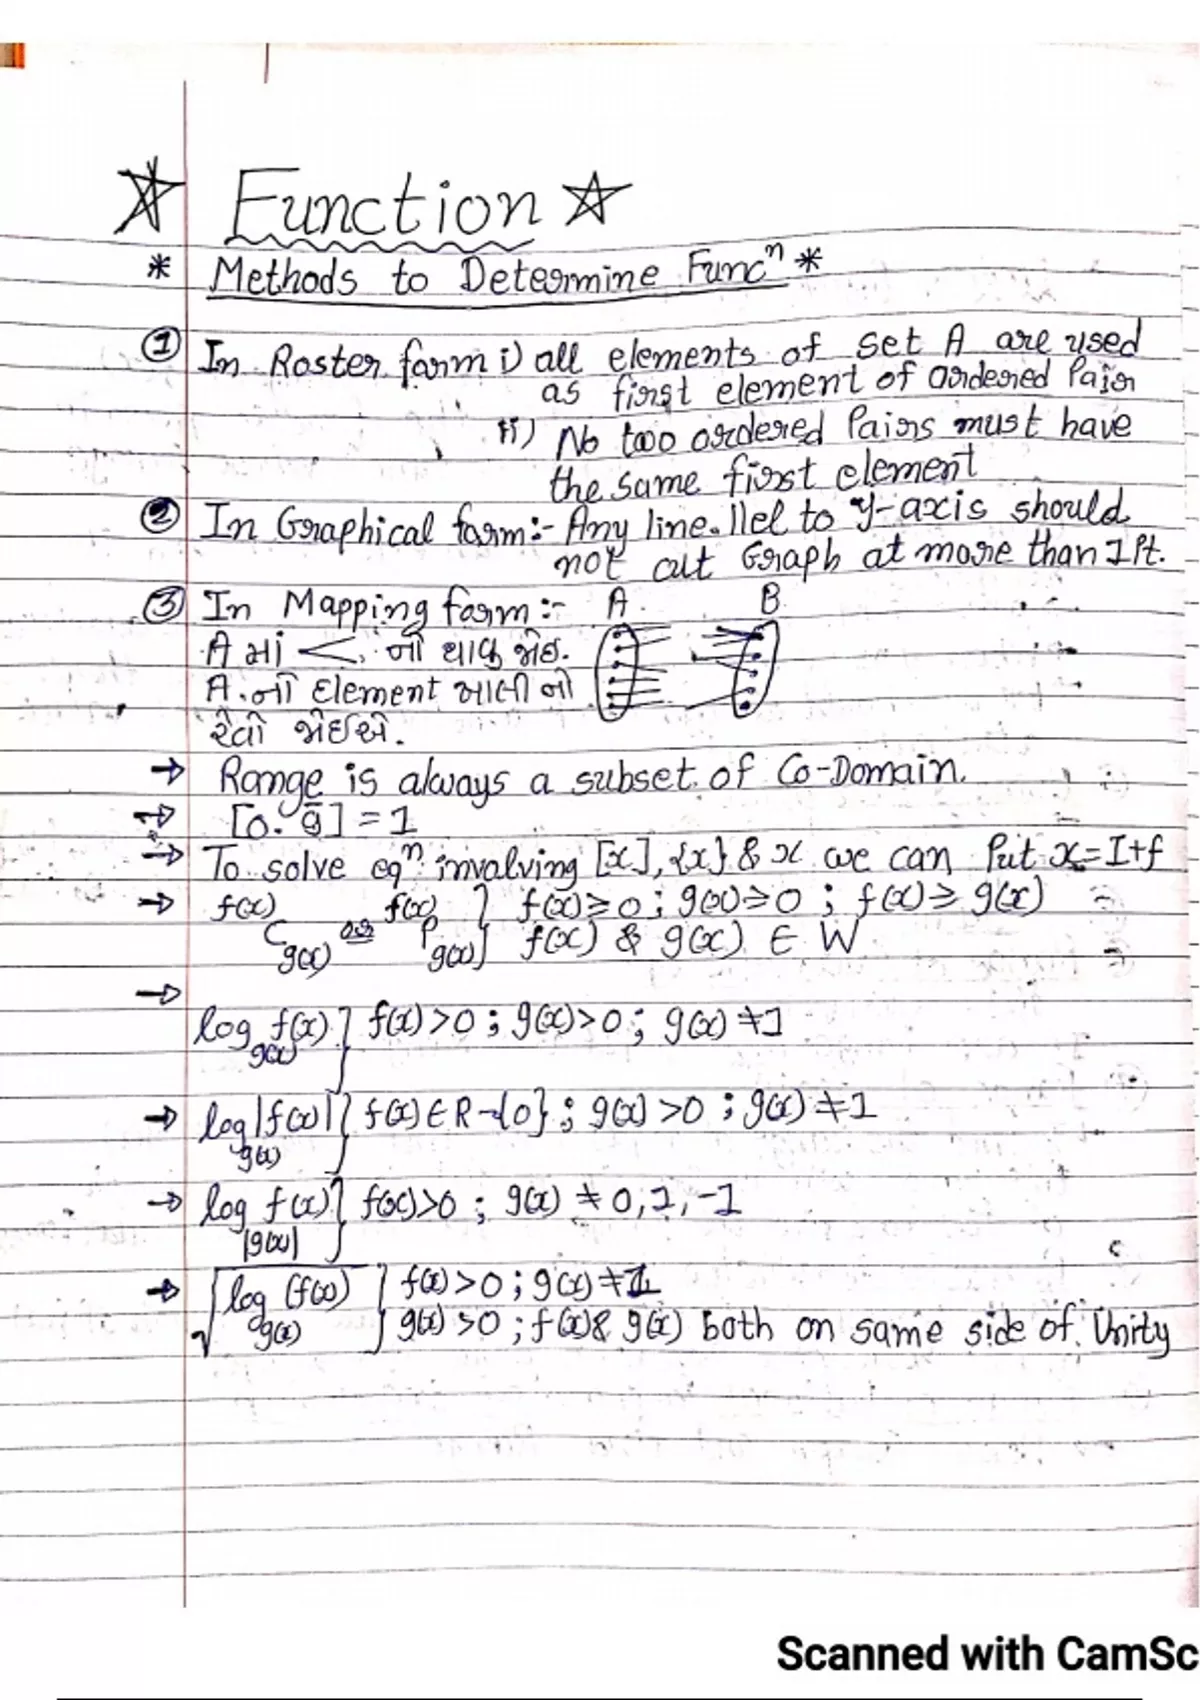 ☆ Function ☆
* Methods to Determine Funcⁿ *
① In Roster form i) all elements of set A are used
as first element of ordered Pair
ii) No two ordered Pairs must have
the same first element
② In Graphical form:- Any line llel to y-axis should
not cut Graph at more than 1 Pt.
③ In Mapping form :- A B
A માં <, નો થાવુ જોઇ.
A નો Element ખાલી નો
રેવો જોઈએ.
→ Range is always a subset of Co-Domain.
→ [0.9̄] = 1
→ To solve eqⁿ involving [x], {x} & x we can Put x=I+f
→ f(x) C g(x) or f(x) P g(x) } f(x)≥0 ; g(x)≥0 ; f(x)≥g(x)
f(x) & g(x) ∈ W
→
log_g(x) f(x) } f(x)>0 ; g(x)>0 ; g(x)≠1
→ log_g(x) |f(x)| } f(x)∈R-{0} ; g(x)>0 ; g(x)≠1
→ log_|g(x)| f(x) } f(x)>0 ; g(x)≠0,1,-1
→ √(log_g(x) (f(x)) } f(x)>0 ; g(x)≠1
g(x)>0 ; f(x)& g(x) both on same side of Unity
Scanned with CamSc